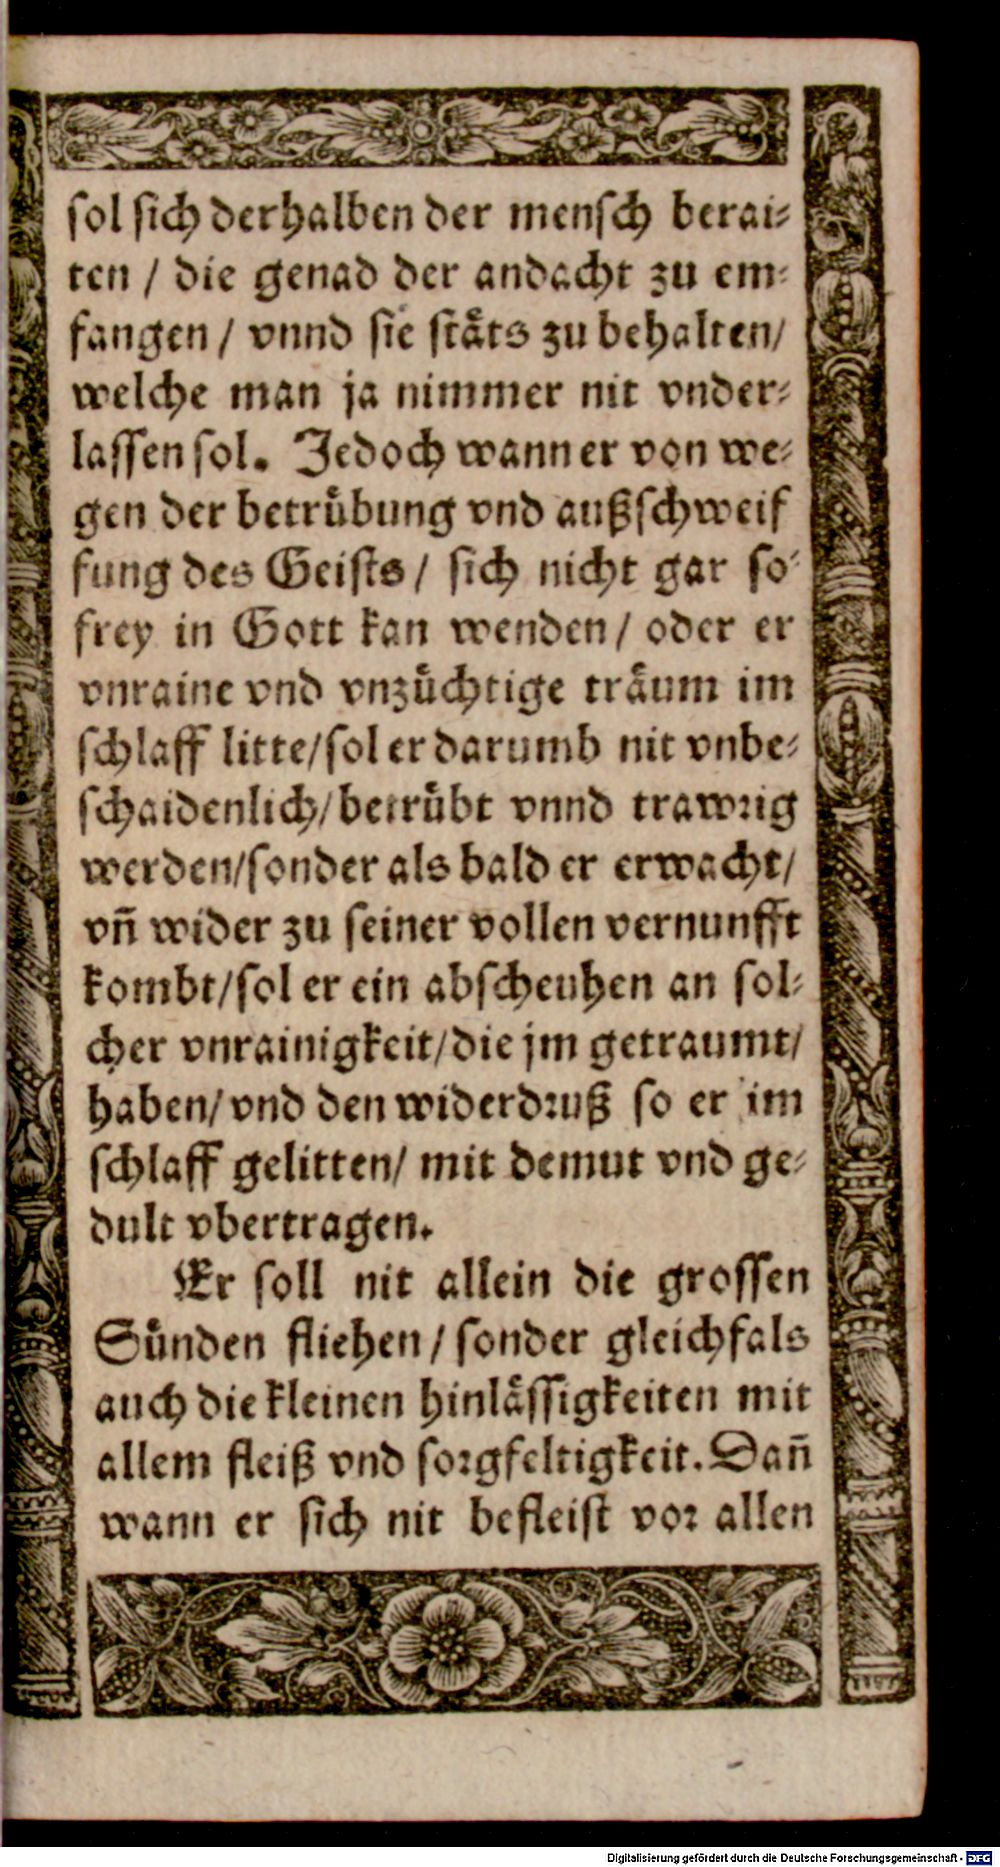 sol sich derhalben der mensch berai⸗
ten / die genad der andacht zu em⸗
fangen / vnnd sie stäts zu behalten/
welche man ja nimmer nit vnder⸗
lassen sol. Jedoch wann er von we⸗
gen der betrübung vnd außschweif
fung des Geists / sich nicht gar so⸗
frey in Gott kan wenden / oder er
vnraine vnd vnzüchtige träum im
schlaff litte/sol er darumb nit vnbe⸗
schaidenlich/betrübt vnnd trawrig
werden/sonder als bald er erwacht/
vñ wider zu seiner vollen vernunfft
kombt/sol er ein abscheuhen an sol⸗
cher vnrainigkeit/die jm getraumt/
haben/vnd den widerdruß so er im
schlaff gelitten/ mit demut vnd ge⸗
dult vbertragen.
Er soll nit allein die grossen
Sünden fliehen / sonder gleichfals
auch die kleinen hinlässigkeiten mit
allem fleiß vnd sorgfeltigkeit. Dañ
wann er sich nit befleist vor allen
Digitalisierung gefördert durch die Deutsche Forschungsgemeinschaft - DFG